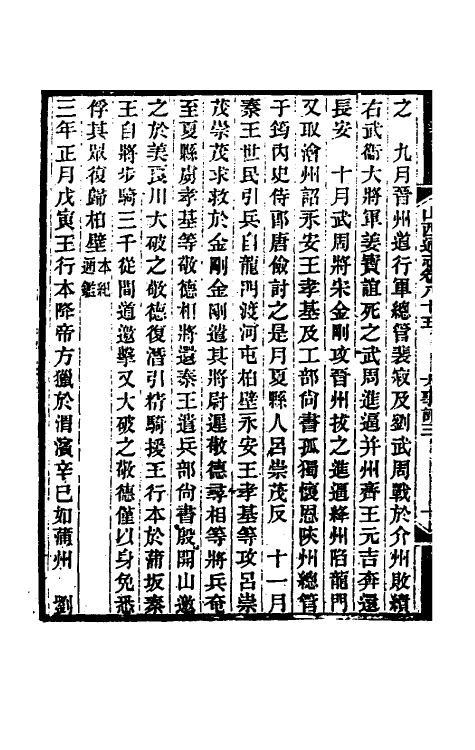 之　九月晉州道行軍總管裴寂及劉武周戰於介州敗績
右武衞大將軍姜寶誼死之武周進逼并州齊王元吉奔還
長安　十月武周將宋金剛攻晉州拔之進逼絳州陷龍門
又取澮州詔永安王孝基及工部尙書孤獨懷恩陜州總管
于筠內史侍郞唐儉討之是月夏縣人呂崇茂反　十一月
秦王世民引兵自龍門渡河屯柏壁永安王孝基等攻呂崇
茂崇茂求救於金剛金剛遣其將尉遲敬德尋相等將兵奄
至夏縣虜孝基等敬德相將還秦王遣兵部尙書殷開山邀
之於美良川大破之敬德復潛引精騎援王行本於蒲坂秦
王自將步騎三千從間道邀擊又大破之敬德僅以身免悉
俘其眾復歸柏壁本紀通鑑
三年正月戊寅王行本降帝方獵於渭濱辛巳如蒲州　劉
山西通志卷八十五　大事記三